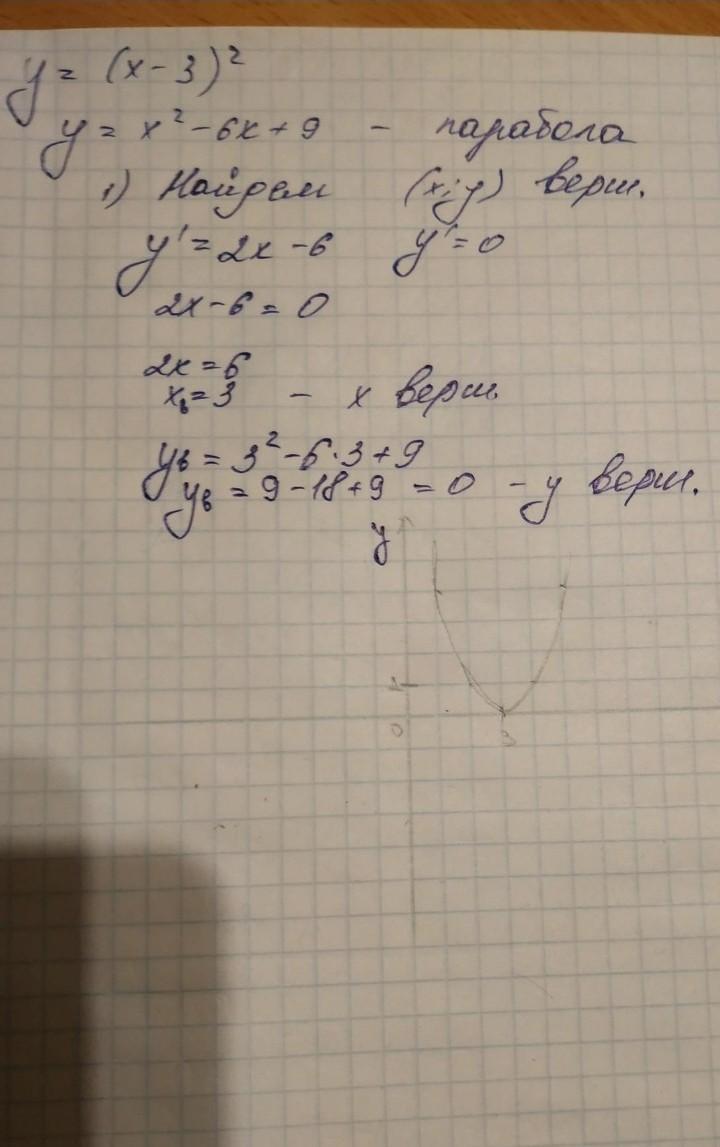 y = (x - 3)²
y = x² - 6x + 9 - парабола
1) Найдем (x; y) верш.
y' = 2x - 6 y' = 0
2x - 6 = 0
2x = 6
xв = 3 - x верш.
yв = 3² - 6·3 + 9
yв = 9 - 18 + 9 = 0 - y верш.
y
1
0 3